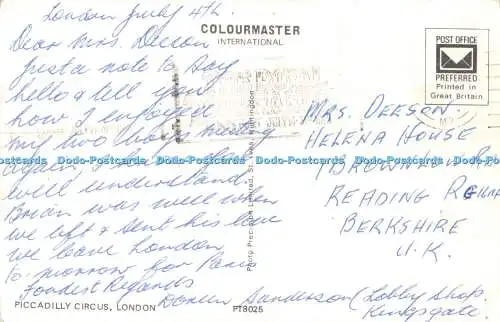 London July 4th.
Dear Mrs. Deeson
Just a note to say
hello & tell you
how I enjoyed
my two boys meeting
again,
will understand
Brian was well when
we left & sent his love
we leave London
to-morrow for Paris
Fondest Regards
Doreen Sanderson (Lobby Shop.
Kingsgate.
COLOURMASTER
INTERNATIONAL
POST OFFICE
PREFERRED
Printed in
Great Britain
MRS. DEESON.
HELENA HOUSE
1 BROWNLOW
READING
BERKSHIRE
U.K.
PICCADILLY CIRCUS, LONDON
PT8025
Dodo-Postcards Dodo-Postcards Dodo-Postcards Dodo-Postcards Dodo-Postcards